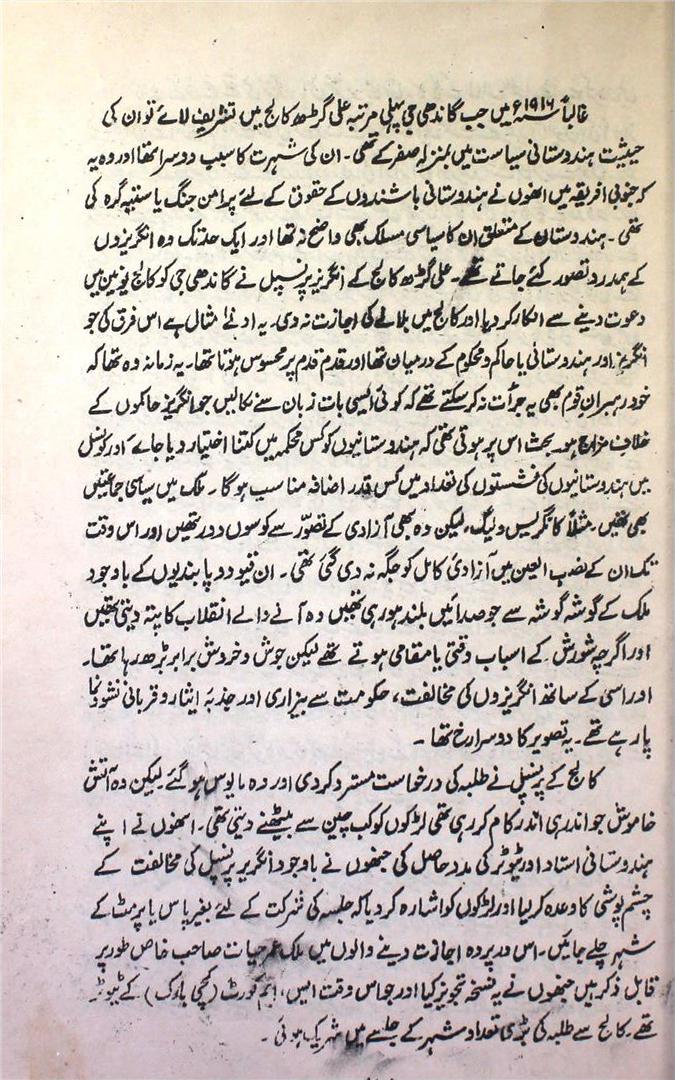 غالباً ۱۹۱۶ء میں جب گاندھی جی پہلی مرتبہ علی گڑھ کالج میں تشریف لائے تو ان کی
حیثیت ہندوستانی سیاست میں بمنزلہ صفر کے تھی۔ ان کی شہرت کا سبب دوسرا تھا اور وہ یہ
کہ جنوبی افریقہ میں انھوں نے ہندوستانی باشندوں کے حقوق کے لئے پرامن جنگ یا ستیہ گرہ کی
تھی۔ ہندوستان کے متعلق ان کا سیاسی مسلک بھی واضح نہ تھا اور ایک حد تک وہ انگریزوں
کے ہمدرد تصور کئے جاتے تھے۔ علی گڑھ کالج کے انگریز پرنسپل نے گاندھی جی کو کالج یونین میں
دعوت دینے سے انکار کر دیا اور کالج میں بلانے کی اجازت نہ دی۔ یہ ادنےٰ مثال ہے اس فرق کی جو
انگریز اور ہندوستانی یا حاکم و محکوم کے درمیان تھا اور قدم قدم پر محسوس ہوتا تھا۔ یہ زمانہ وہ تھا کہ
خود رہبران قوم بھی یہ جرأت نہ کر سکتے تھے کہ کوئی ایسی بات زبان سے نکالیں جو انگریز حاکموں کے
خلاف مزاج ہو۔ بحث اس پر ہوتی تھی کہ ہندوستانیوں کو کس محکمہ میں کتنا اختیار دیا جائے اور کونسل
میں ہندوستانیوں کی نشستوں کی تعداد میں کس قدر اضافہ مناسب ہوگا۔ ملک میں سیاسی جماعتیں
بھی تھیں۔ مثلاً کانگریس و لیگ، لیکن وہ بھی آزادی کے تصوّر سے کوسوں دور تھیں اور اس وقت
تک ان کے نصب العین میں آزادئ کامل کو جگہ نہ دی گئی تھی۔ ان قیود و پابندیوں کے باوجود
ملک کے گوشہ گوشہ سے جو صدائیں بلند ہو رہی تھیں وہ آنے والے انقلاب کا پتہ دیتی تھیں
اور اگرچہ شورش کے اسباب وقتی یا مقامی ہوتے تھے لیکن جوش و خروش برابر بڑھ رہا تھا۔
اور اسی کے ساتھ انگریزوں کی مخالفت، حکومت سے بیزاری اور جذبۂ ایثار و قربانی نشوونما
پا رہے تھے۔ یہ تصویر کا دوسرا رخ تھا۔
کالج کے پرنسپل نے طلبہ کی درخواست مسترد کر دی اور وہ مایوس ہو گئے۔ لیکن وہ آتش
خاموش جو اندر ہی اندر کام کر رہی تھی لڑکوں کو کب چین سے بیٹھنے دیتی تھی۔ انھوں نے اپنے
ہندوستانی استاد اور ٹیوٹر کی مدد حاصل کی جنھوں نے باوجود انگریز پرنسپل کی مخالفت کے
چشم پوشی کا وعدہ کر لیا اور لڑکوں کو اشارہ کر دیا کہ جلسہ کی شرکت کے لئے بغیر پاس یا پرمٹ کے
شہر چلے جائیں۔ اس درپردہ اجازت دینے والوں میں ملک عمر حیات صاحب خاص طور پر
قابل ذکر ہیں جنھوں نے یہ نسخہ تجویز کیا اور جو اس وقت ایس، ایم کورٹ (کچی بارک) کے ٹیوٹر
تھے۔ کالج سے طلبہ کی بڑی تعداد شہر کے جلسے میں شریک ہوئی۔